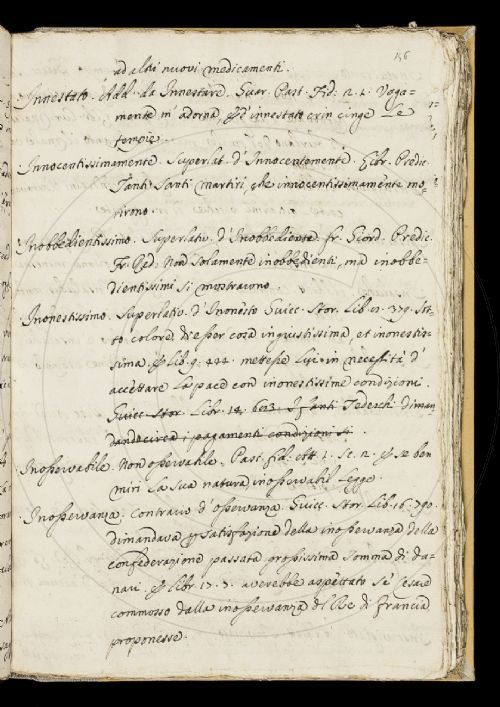 146
ad altri nuovi medicamenti.
Innestato. Add. da Innestare. Guar. Past. Fid. n. 1. Vaga-
mente m'adorna, & d'innestato crin cinge le
tempie.
Innocentissimamente. Superlat. d'Innocentemente. Libr. Predic.
Tanti Santi martiri, che innocentissimamente mo-
rirono.
Inobbedientissimo. Superlativ. d'Inobbediente. fr. Giord. Predic.
Fr. Red. Non solamente inobbedienti, ma inobbe-
dientissimi si mostravano.
Inonestissimo. Superlativo. d'Inonesto Guicc. Stor. Lib. 379. Sot-
to colore di esser cosa ingiustissima, et inonestis-
sima, & Lib. 9. 444. mettesse Luigi in necessità d'
accettare la pace con inonestissime condizioni.
Guicc. Stor. Libr. 14. 683. I fanti Tedeschi diman
dando circa i pagamenti condizioni si
Inosservabile. Non osservabile. Past. fid. att. 1. Sc. 2. & se ben
miri la sua natura, inosservabil Legge.
Inosservanza. Contrario d'osservanza. Guicc. Stor. Lib. 16. 790.
dimandava p satisfazione della inosservanza della
confederazione passata grossissima somma di da-
nari. & libr. 17. 3. averebbe aspettato se Cesare
commosso dalla inosservanza del Re di francia
proponesse.